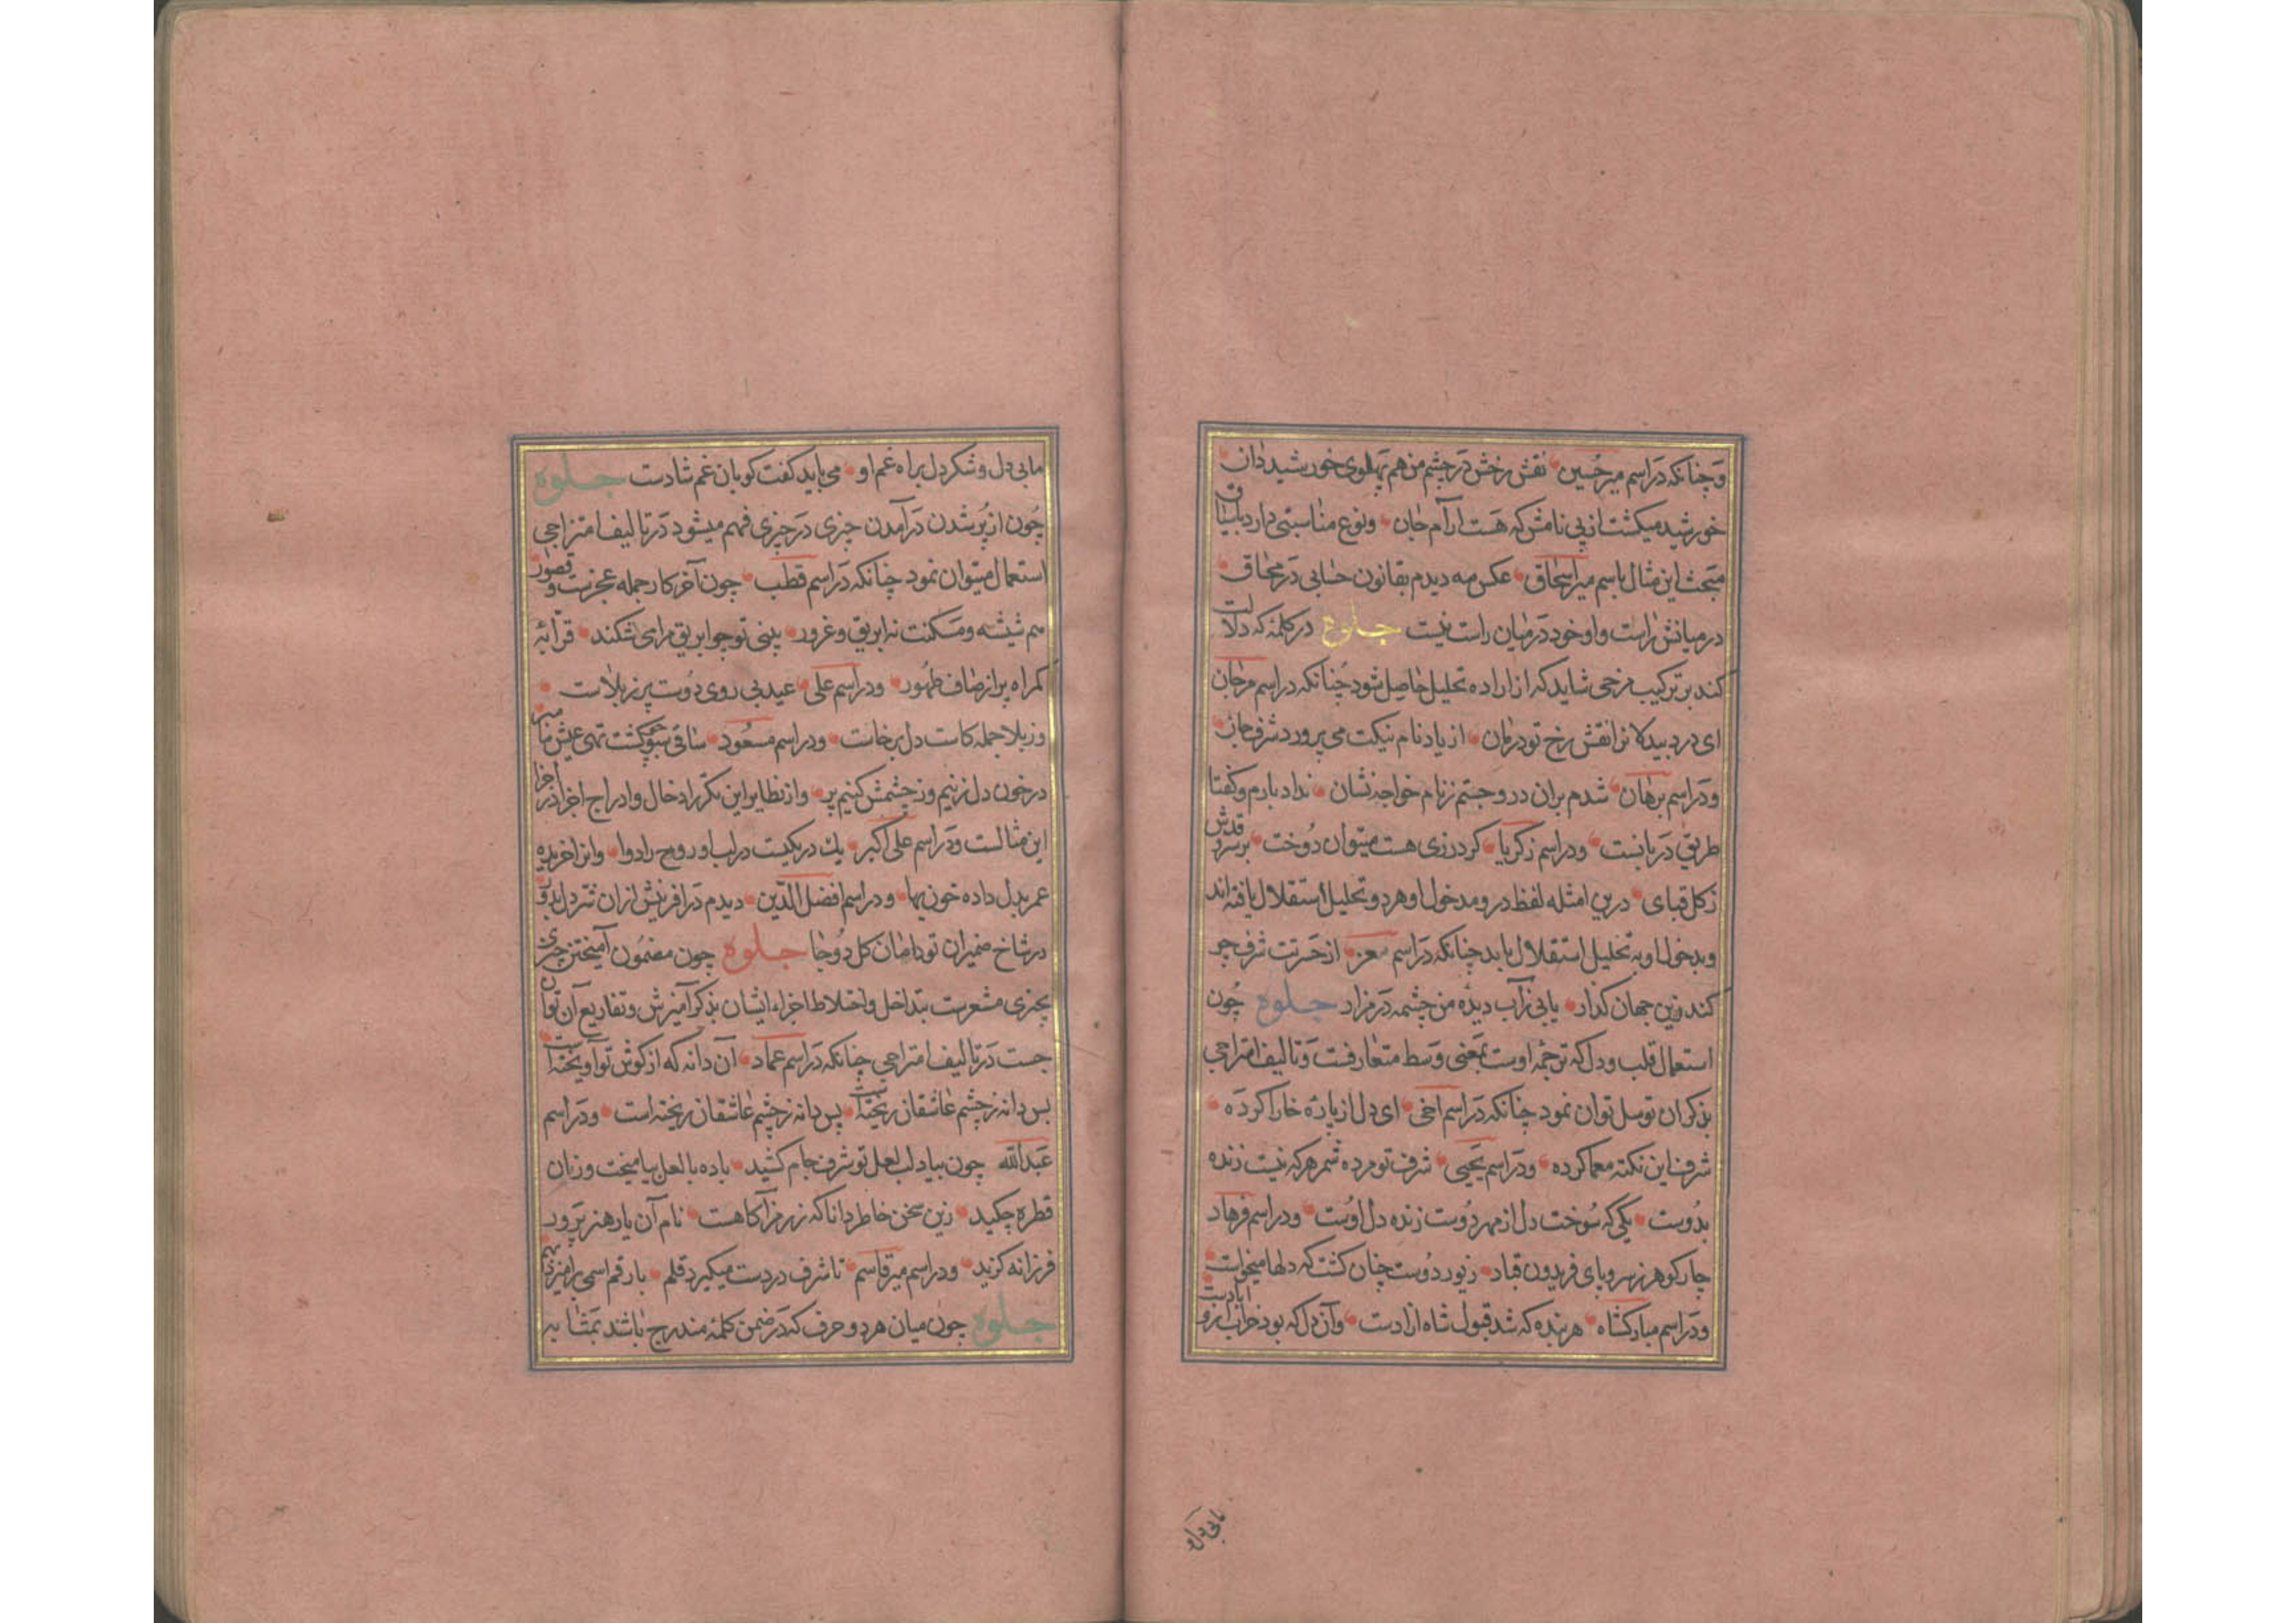 و چنانکه در اسم میر حسین نقش رخش در چشم من هم پهلوی خورشید دان
خورشید میکشت از پی نامش که هست ارآم جان ونوع مناسبتی دارد باسیاق
مبحث این مثال باسم میر اسحاق عکس مه دیدم بقانون حسابی در محاق
در میانش راست واو خود در میان راست نیست جلوه در کلمهٔ که دلالت
کند بر ترکیب مزجی شاید که از اراده تحلیل حاصل شود چنانکه در اسم مرجان
ای درد بیدلان را نقش رخ تو درمان از یاد نام نیکت می پرورد شرف جان
و در اسم برهان شدم بران در و جستم ز نام خواجه نشان ندا د بارم و کفتا
طریق دربانست و در اسم زکریا کر درزی هست میتوان دوخت بر سر و قدش
ز کل قبای درین امثله لفظ در و مدخول او هر دو تحلیل استقلال یافته اند
و مدخول او به تحلیل استقلال یابد چنانکه در اسم معز از حسرتت شرف چو
کند زین جهان کذار یابی زآب دیده من چشمه در مزار جلوه چون
استعمال قلب و دل که ترجمه اوست بمعنی وسط متعارفست و تالیف امتزاجی
بذکر ان توسل توان نمود چنانکه در اسم اخی ای دل از پاره خارا کرده
شرف این نکته معما کرده و در اسم یحیی شرف تو مرده شمر هر که نیست زنده
بدوست یکی که سوخت دل از مهر دوست زنده دل اوست و در اسم فرهاد
چار کوهر ز سر و پای فریدون قباد زیور دوست چنان کشت که دلها میخواست
و در اسم مبارکشاه هر بنده که شد قبول شاه ازادست وآن دل که بود خراب ازو ابادست
مابی دل و
مابی دل و شکر دل براه غم او می باید کفت کو بان غم شادست جلوه
چون از پر شدن درآمدن چیزی در چیزی فهم میشود در تالیف امتزاجی
استعمال میتوان نمود چنانکه در اسم قطب چون آخر کار جمله عجزست و قصور
هم شیشه و مسکنت نه ابریق و غرور بینی تو چو ابریق مرا می شکند قرآبه
کمراه پر از صاف طهور و در اسم علی عید بی روی دوست پر ز بلاست
وز بلا جمله کاست دل برخاست و در اسم مسعود ساقی سبو چو کشت تهی عیش تا بسر
در خون دل زنیم وز چشمش کنیم پر و از نظایر این مکرر ادخال و ادراج اجزا در اجزا
این مثالست و در اسم علی اکبر یک در یکیست در لب او روح را دوا وانرا خریده
عمر بدل داده خون بها و در اسم افضل الدین دیدم در افرینش ازان تتر دل بدور
در شاخ ضمیران تو دامان کل دو جا جلوه چون مضمون آمیختن چیزی
بچیزی مشعرست بتداخل و اختلاط اجزاء ایشان بذکر آمیزش و تفاریع آن توان
جست در تالیف امتزاجی چنانکه در اسم عماد آن دانه که از کوش تو آویخته است
بس دانه ز چشم عاشقان ریخته است پس دانه ز چشم عاشقان ریخته است و در اسم
عبدالله چون بیاد لب لعل تو شرف جام کشید باده با لعل بیامیخت وزان
قطره چکید زین سخن خاطر دانا که ز رمز آکاهست نام آن یار هنر پرور
فرزانه کزید و در اسم میر قاسم تا شرف در دست میکیرد قلم با رقم اسمی برامیزد بهم
جلوه چون میان هر دو حرف که در ضمن کلمهٔ مندرج باشند بمثابه